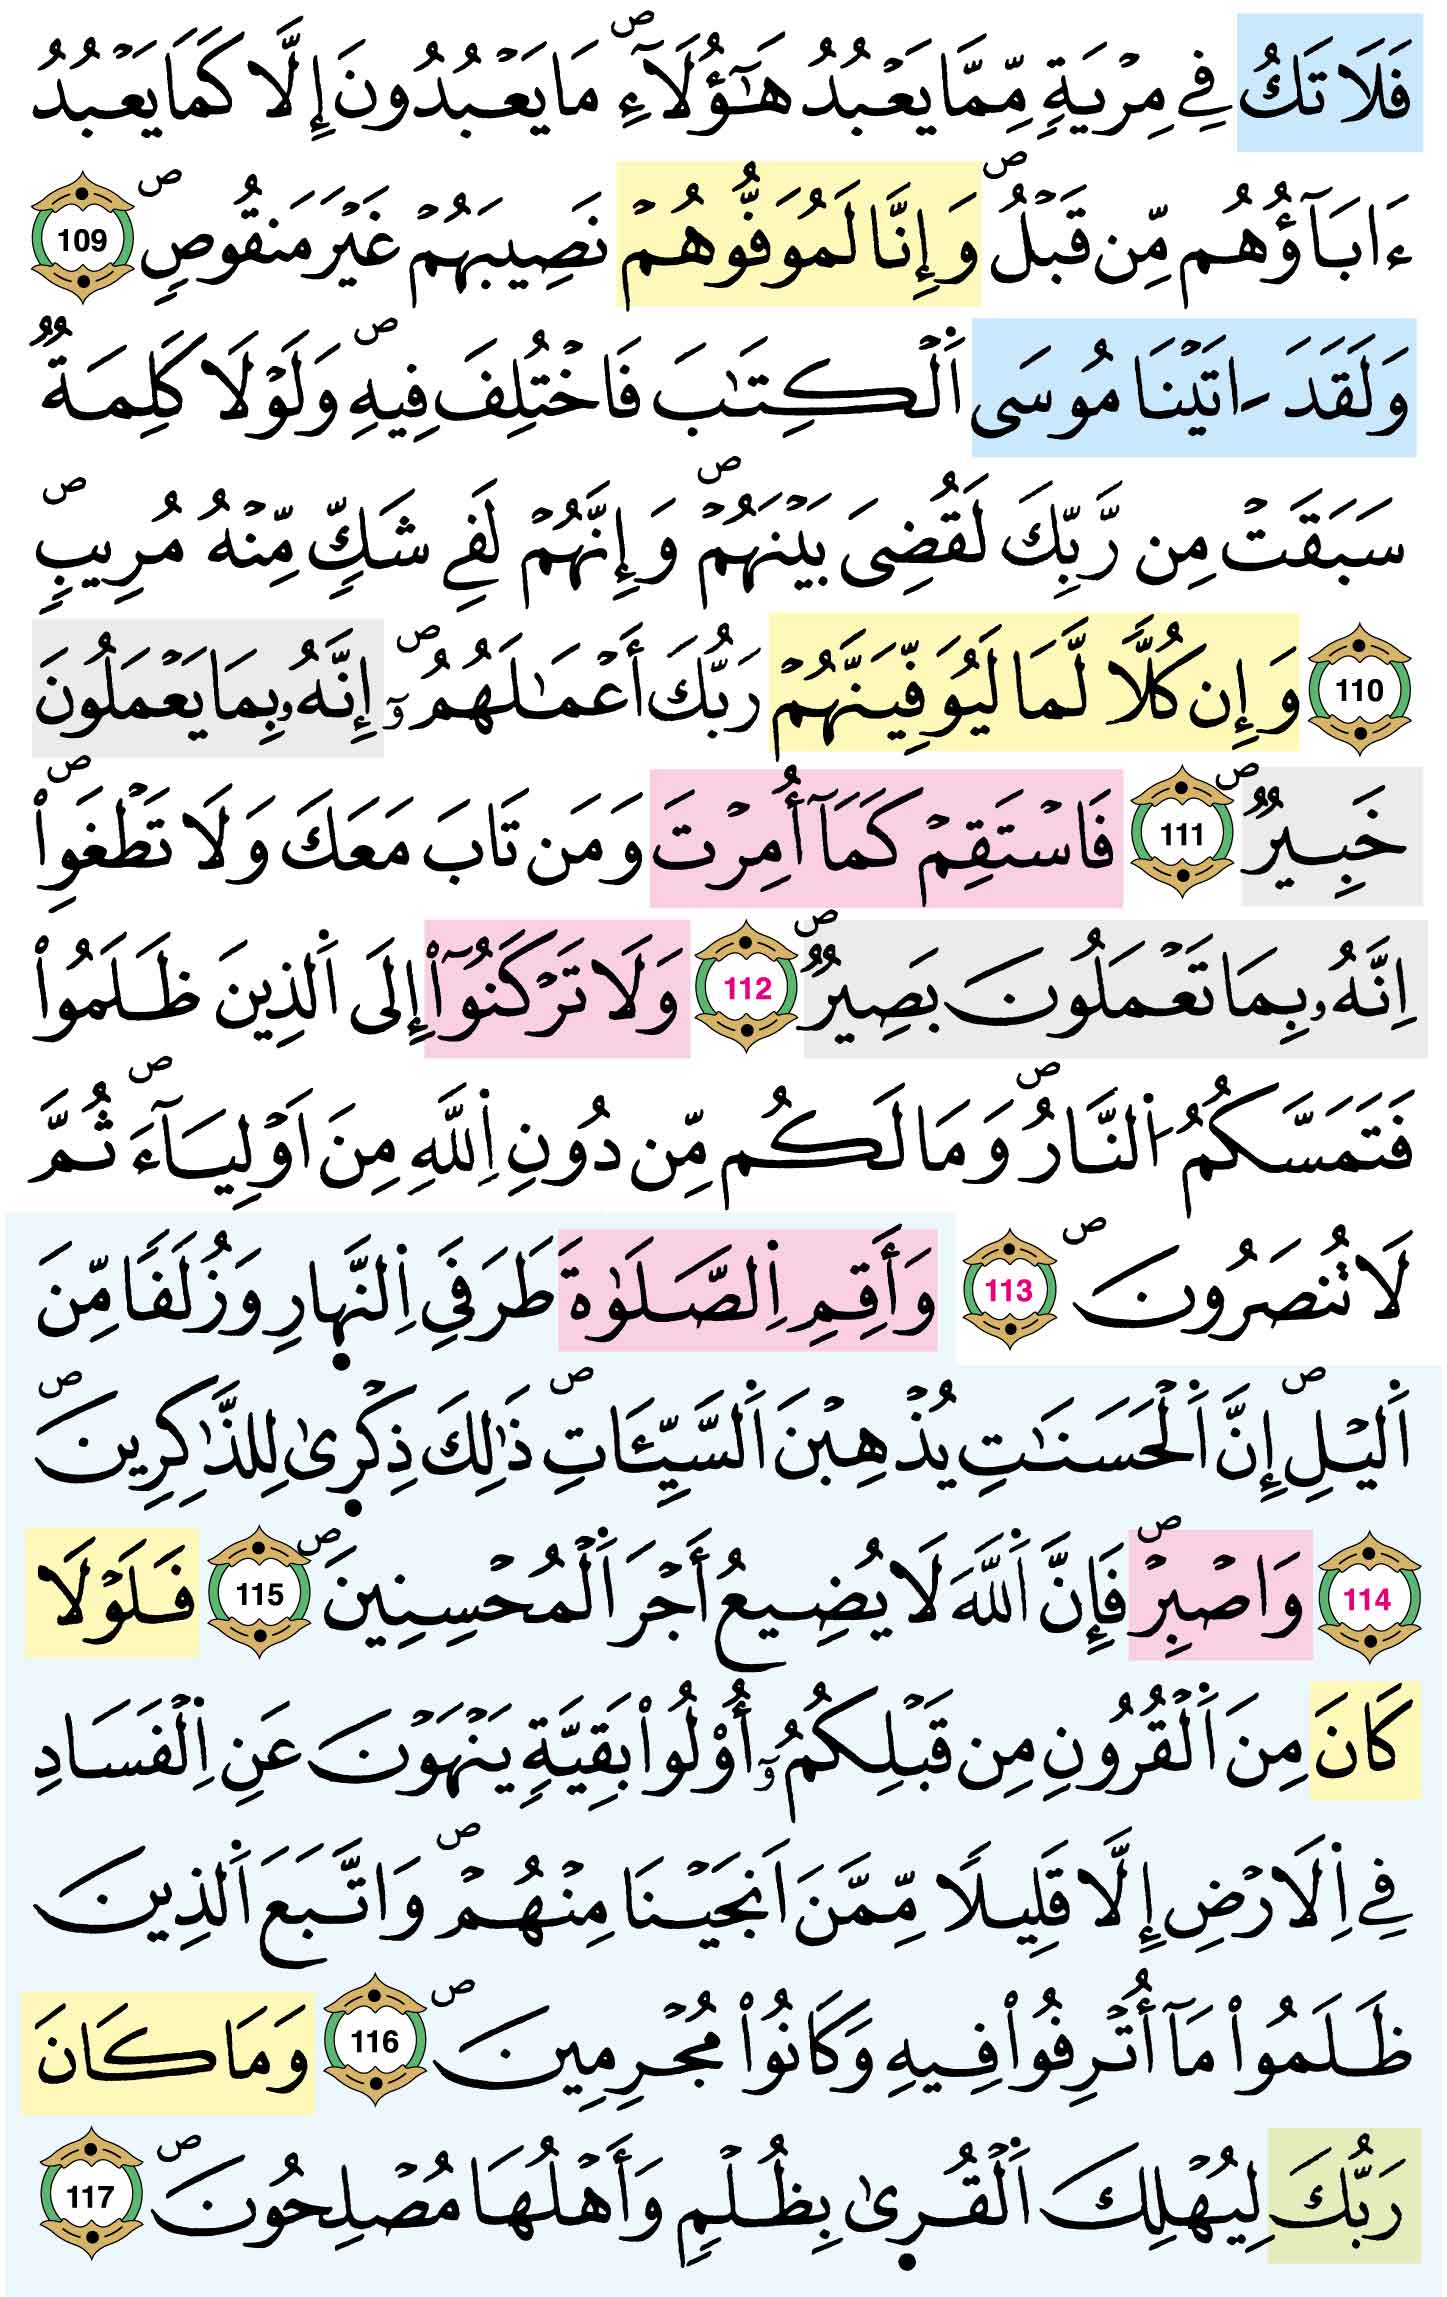 فَلَا تَكُ فِے مِرْيَةٍ مِّمَّا يَعْبُدُ هَٰٓؤُلَآءِۖ مَا يَعْبُدُونَ إِلَّا كَمَا يَعْبُدُ
ءَابَآؤُهُم مِّن قَبْلُۖ وَإِنَّا لَمُوَفُّوهُمْ نَصِيبَهُمْ غَيْرَ مَنقُوصٖۖ 109
وَلَقَدَ اٰتَيْنَا مُوسَى اَلْكِتَٰبَ فَاخْتُلِفَ فِيهِۖ وَلَوْلَا كَلِمَةٞ
سَبَقَتْ مِن رَّبِّكَ لَقُضِيَ بَيْنَهُمْۖ وَإِنَّهُمْ لَفِے شَكّٖ مِّنْهُ مُرِيبٖۖ
110 وَإِن كُلّاٗ لَّمَا لَيُوَفِّيَنَّهُمْ رَبُّكَ أَعْمَٰلَهُمُۥٓۖ إِنَّهُۥ بِمَا يَعْمَلُونَ
خَبِيرٞۖ 111 فَاسْتَقِمْ كَمَآ أُمِرْتَ وَمَن تَابَ مَعَكَ وَلَا تَطْغَوِاْۖ
اِنَّهُۥ بِمَا تَعْمَلُونَ بَصِيرٞۖ 112 وَلَا تَرْكَنُوٓاْ إِلَى اَلذِينَ ظَلَمُواْ
فَتَمَسَّكُمُ اُلنَّارُۖ وَمَا لَكُم مِّن دُونِ اِللَّهِ مِنَ اَوْلِيَآءَۖ ثُمَّ
لَا تُنصَرُونَۖ 113 وَأَقِمِ اِلصَّلَوٰةَ طَرَفَيِ اِلنَّهارِ وَزُلَفاٗ مِّنَ
اَليْلِۖ إِنَّ اَلْحَسَنَٰتِ يُذْهِبْنَ اَلسَّيِّـَٔاتِۖ ذَٰلِكَ ذِكْر۪يٰ لِلذَّٰكِرِينَۖ
114 وَاصْبِرْۖ فَإِنَّ اَللَّهَ لَا يُضِيعُ أَجْرَ اَلْمُحْسِنِينَۖ 115 فَلَوْلَا
كَانَ مِنَ اَلْقُرُونِ مِن قَبْلِكُمُۥٓ أُوْلُواْ بَقِيَّةٖ يَنْهَوْنَ عَنِ اِلْفَسَادِ
فِے اِلَارْضِ إِلَّا قَلِيلاٗ مِّمَّنَ اَنجَيْنَا مِنْهُمْۖ وَاتَّبَعَ اَلذِينَ
ظَلَمُواْ مَآ أُتْرِفُواْ فِيهِ وَكَانُواْ مُجْرِمِينَۖ 116 وَمَا كَانَ
رَبُّكَ لِيُهْلِكَ اَلْقُر۪يٰ بِظُلْمٖ وَأَهْلُهَا مُصْلِحُونَۖ 117